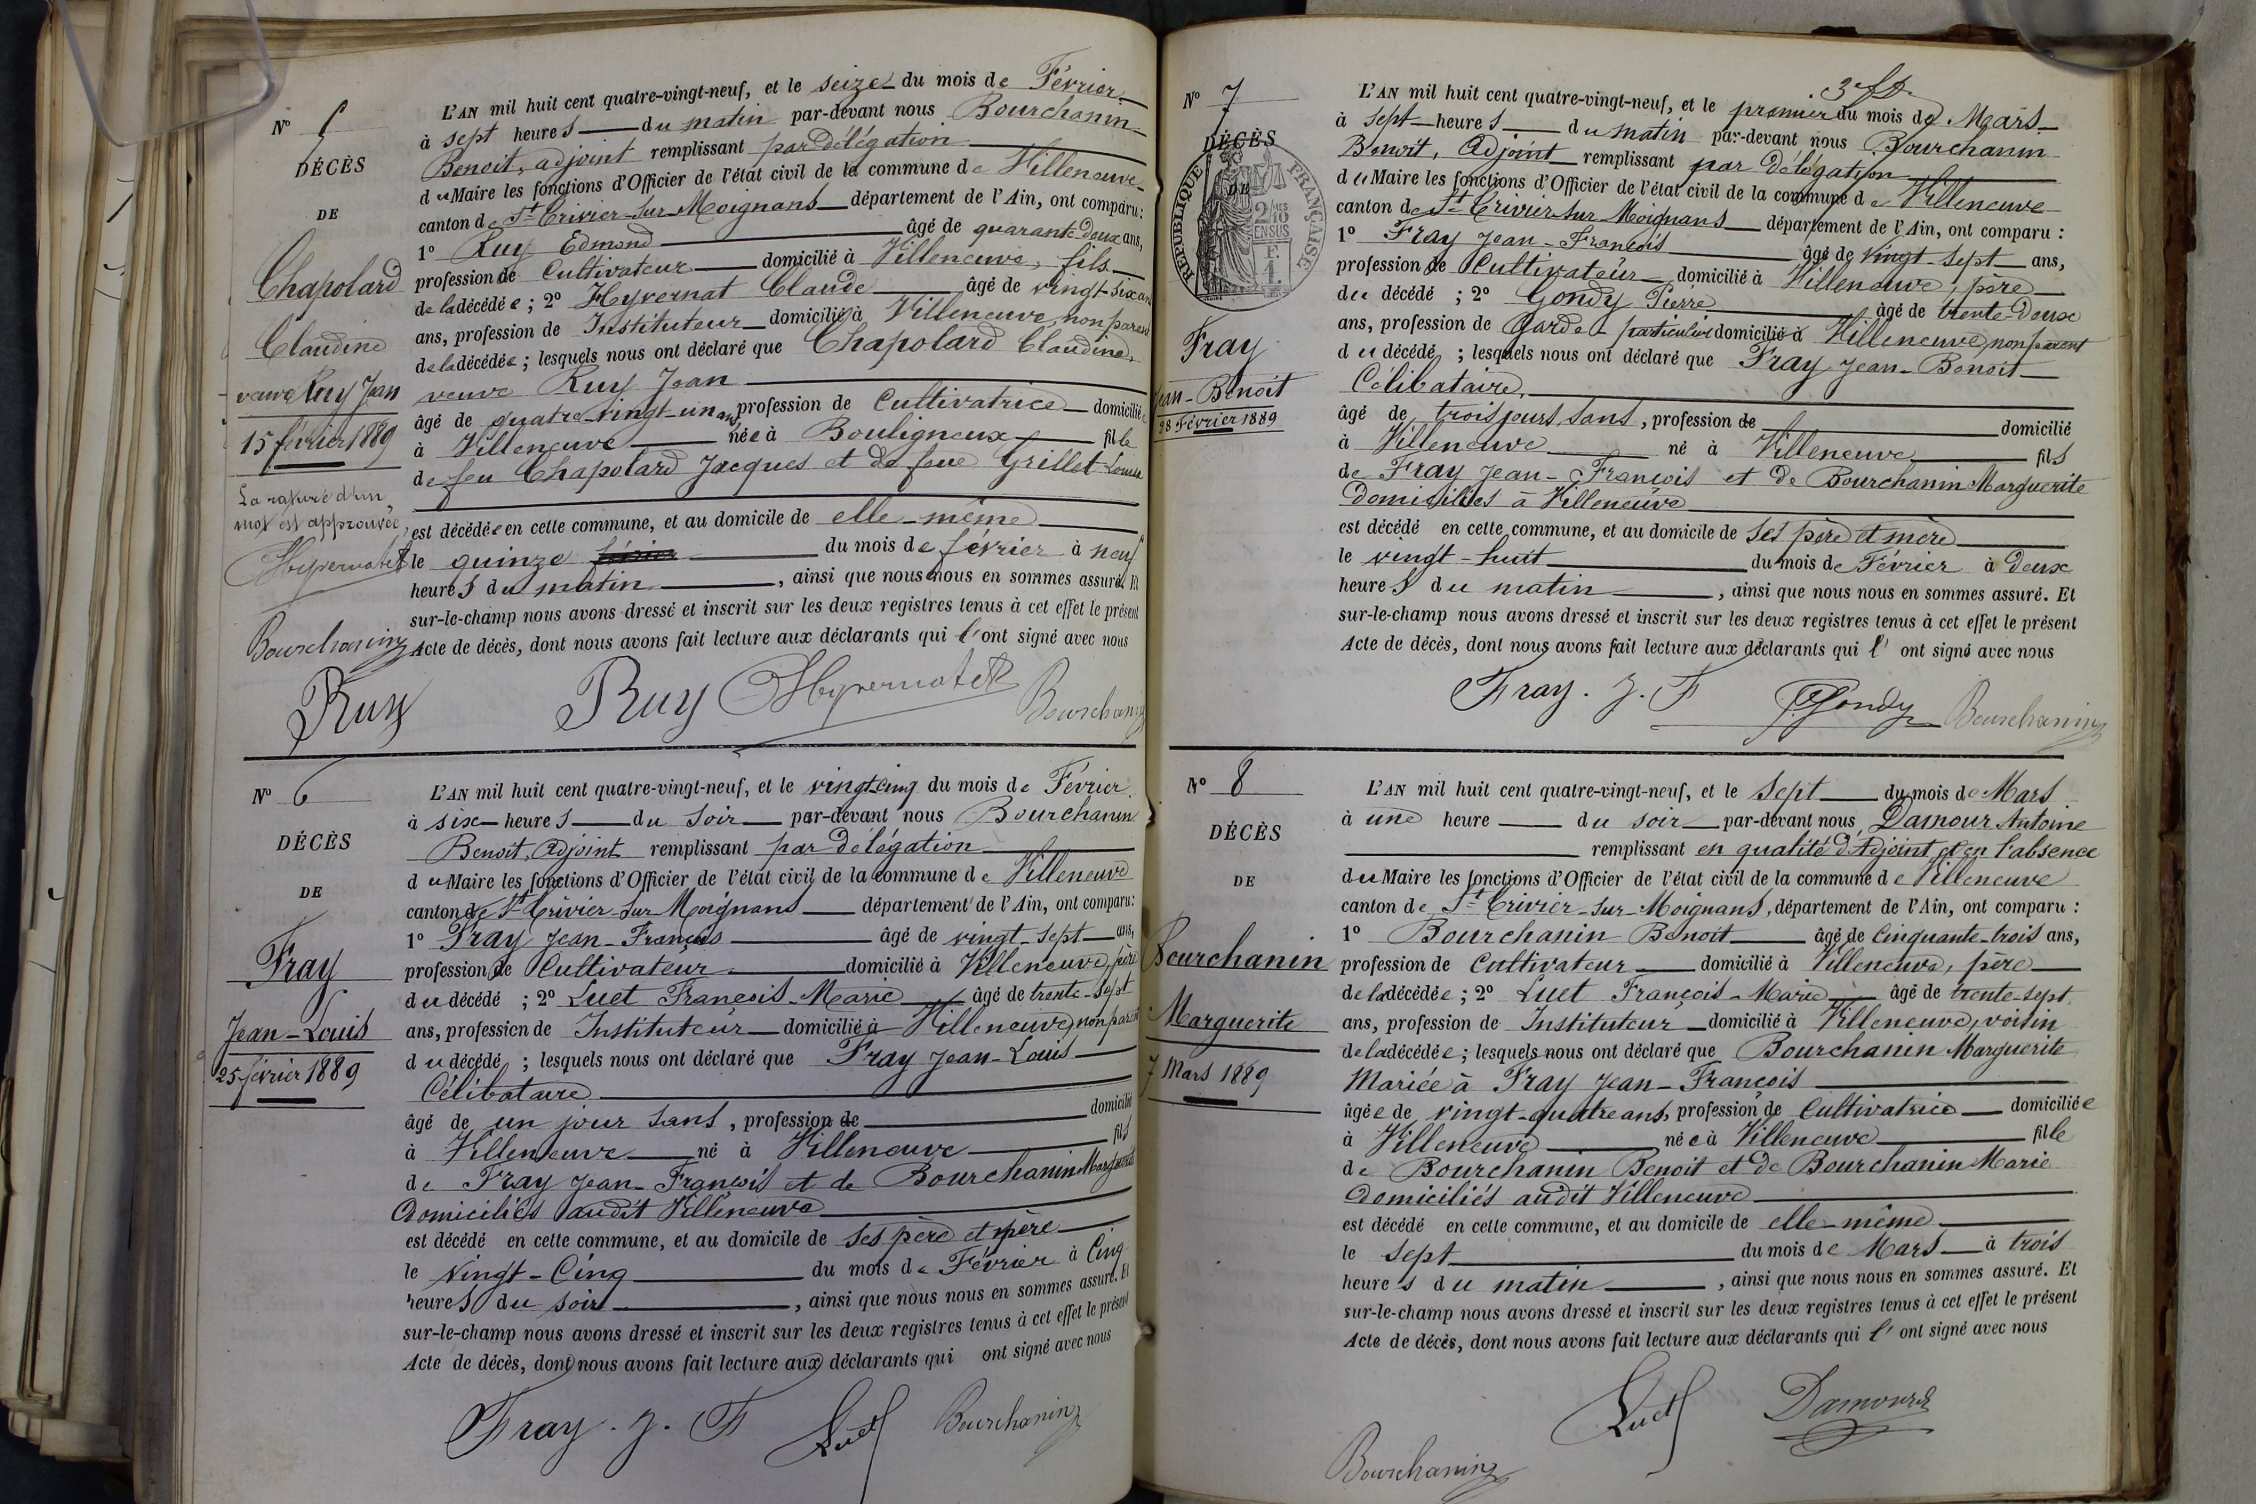 N° 5
DÉCÈS
DE
Chapolard
Claudine
veuve Ruy Jean
15 février 1889
La rature d'un
mot est approuvée
Hyvernat
Bourchanin
Ruy
L'AN mil huit cent quatre-vingt-neuf, et le seize du mois de Février
à sept heures du matin par-devant nous Bourchanin
Benoit, adjoint remplissant par délégation
du Maire les fonctions d'Officier de l'état civil de la commune de Villeneuve
canton de St Trivier-sur-Moignans département de l'Ain, ont comparu :
1° Ruy Edmond âgé de quarante-deux ans,
profession de Cultivateur domicilié à Villeneuve, fils
de la décédée ; 2° Hyvernat Claude âgé de vingt-six ans
ans, profession de Instituteur domicilié à Villeneuve, non parent
de la décédée ; lesquels nous ont déclaré que Chapolard Claudine,
veuve Ruy Jean
âgé de quatre-vingt-un ans, profession de Cultivatrice domiciliée
à Villeneuve née à Bouligneux fille
de feu Chapolard Jacques et de feue Grillet Louise
est décédée en cette commune, et au domicile de elle-même
le quinze du mois de février à neuf
heures du matin, ainsi que nous nous en sommes assuré. Et
sur-le-champ nous avons dressé et inscrit sur les deux registres tenus à cet effet le présent
Acte de décès, dont nous avons fait lecture aux déclarants qui l'ont signé avec nous
Ruy Hyvernat Bourchanin
N° 6
DÉCÈS
DE
Fray
Jean-Louis
25 février 1889
L'AN mil huit cent quatre-vingt-neuf, et le vingt cinq du mois de Février
à six heures du soir par-devant nous Bourchanin
Benoit, Adjoint remplissant par délégation
du Maire les fonctions d'Officier de l'état civil de la commune de Villeneuve
canton de St Trivier-sur-Moignans département de l'Ain, ont comparu :
1° Fray Jean-François âgé de vingt-sept ans,
profession de Cultivateur domicilié à Villeneuve, père
du décédé ; 2° Luet François-Marie âgé de trente-sept
ans, profession de Instituteur domicilié à Villeneuve, non parent
du décédé ; lesquels nous ont déclaré que Fray Jean-Louis
Célibataire
âgé de un jour sans, profession de domicilié
à Villeneuve né à Villeneuve fils
de Fray Jean-François et de Bourchanin Marguerite
Domiciliés audit Villeneuve
est décédé en cette commune, et au domicile de ses père et mère
le Vingt-Cinq du mois de Février à Cinq
heures du soir, ainsi que nous nous en sommes assuré. Et
sur-le-champ nous avons dressé et inscrit sur les deux registres tenus à cet effet le présent
Acte de décès, dont nous avons fait lecture aux déclarants qui ont signé avec nous
Fray. J. F Luet Bourchanin
N° 7
DÉCÈS
DE
RÉPUBLIQUE FRANÇAISE
2/10 EN SUS
Fray
Jean-Benoit
28 Février 1889
L'AN mil huit cent quatre-vingt-neuf, et le premier du mois de Mars
à sept heures du matin par-devant nous Bourchanin
Benoit, Adjoint remplissant par délégation
du Maire les fonctions d'Officier de l'état civil de la commune de Villeneuve
canton de St Trivier sur Moignans département de l'Ain, ont comparu :
1° Fray Jean-François âgé de vingt-sept ans,
profession de Cultivateur domicilié à Villeneuve, père
du décédé ; 2° Gondy Pierre âgé de trente-deux
ans, profession de garde-particulier domicilié à Villeneuve, non parent
du décédé ; lesquels nous ont déclaré que Fray Jean-Benoit
Célibataire,
âgé de trois jours sans, profession de domicilié
à Villeneuve né à Villeneuve fils
de Fray Jean-François et de Bourchanin Marguerite
Domiciliés à Villeneuve
est décédé en cette commune, et au domicile de ses père et mère
le vingt-huit du mois de Février à deux
heures du matin, ainsi que nous nous en sommes assuré. Et
sur-le-champ nous avons dressé et inscrit sur les deux registres tenus à cet effet le présent
Acte de décès, dont nous avons fait lecture aux déclarants qui l'ont signé avec nous
Fray. J. F PGondy Bourchanin
N° 8
DÉCÈS
DE
Bourchanin
Marguerite
7 Mars 1889
L'AN mil huit cent quatre-vingt-neuf, et le sept du mois de Mars
à une heure du soir par-devant nous Damour Antoine
remplissant en qualité d'Adjoint et en l'absence
du Maire les fonctions d'Officier de l'état civil de la commune de Villeneuve
canton de St Trivier-sur-Moignans, département de l'Ain, ont comparu :
1° Bourchanin Benoit âgé de Cinquante-trois ans,
profession de Cultivateur domicilié à Villeneuve, père
de la décédée ; 2° Luet François-Marie âgé de trente-sept
ans, profession de Instituteur domicilié à Villeneuve, voisin
de la décédée ; lesquels nous ont déclaré que Bourchanin Marguerite
Mariée à Fray Jean-François
âgée de vingt-quatre ans, profession de Cultivatrice domiciliée
à Villeneuve née à Villeneuve fille
de Bourchanin Benoit et de Bourchanin Marie
Domiciliés audit Villeneuve
est décédé en cette commune, et au domicile de elle-même
le sept du mois de Mars à trois
heures du matin, ainsi que nous nous en sommes assuré. Et
sur-le-champ nous avons dressé et inscrit sur les deux registres tenus à cet effet le présent
Acte de décès, dont nous avons fait lecture aux déclarants qui l'ont signé avec nous
Luet Damour
Bourchanin